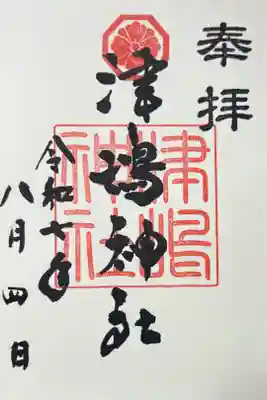 奉拝
津嶋神社
津嶋神社
令和七年
八月四日